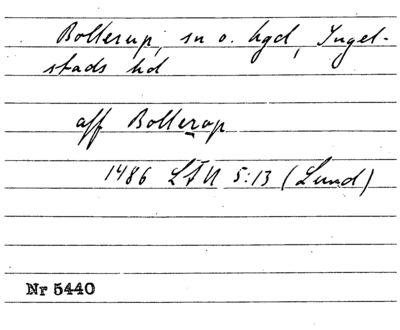 Bollerup, sn o. hgd, Ingel-
stads hd
aff Bollerup
1486 LÄU 5:13 (Lund)
Nr 5440